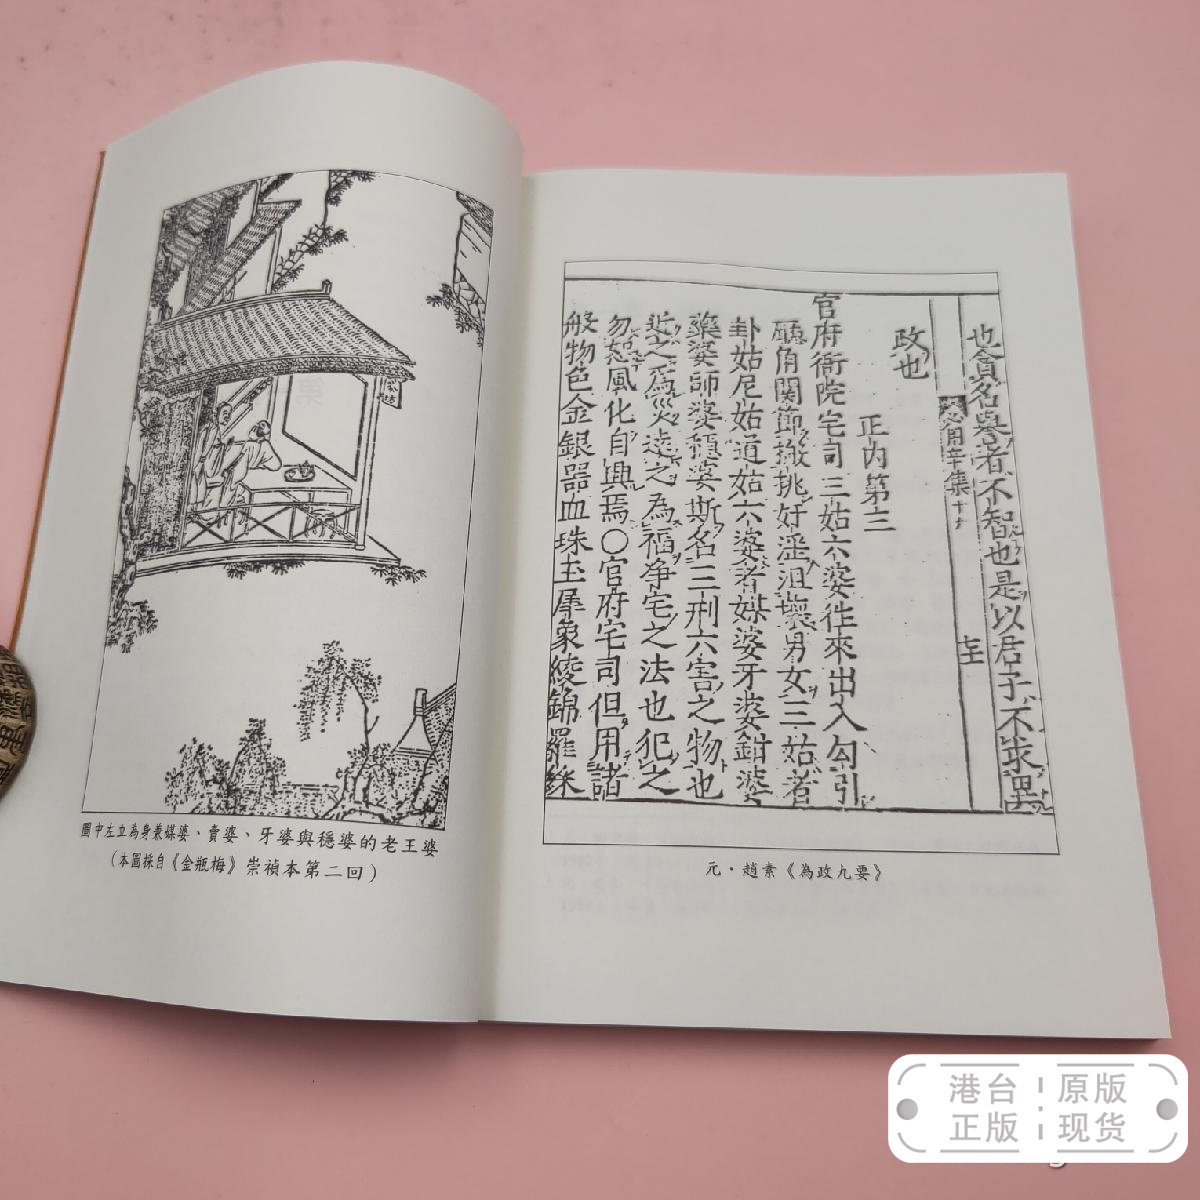 圖中左立為身兼媒婆、賣婆、牙婆與穩婆的老王婆
(本圖採自《金瓶梅》崇禎本第二回)
也貪名譽者不智也是以君子不求異
政也
正內第三
官府衙院宅司三姑六婆徃來出入勾引
廳角関節搬挑奸淫沮壞男女三姑者
卦姑尼姑道姑六婆者媒婆牙婆鉗婆
藥婆師婆穩婆斯名三刑六害之物也
近之為災逺之為福净宅之法也犯之
勿恕風化自興焉〇官府宅司但用諸
般物色金銀器皿珠玉犀象綾錦羅絲
元·趙素《為政九要》
港台 原版
正版 现货